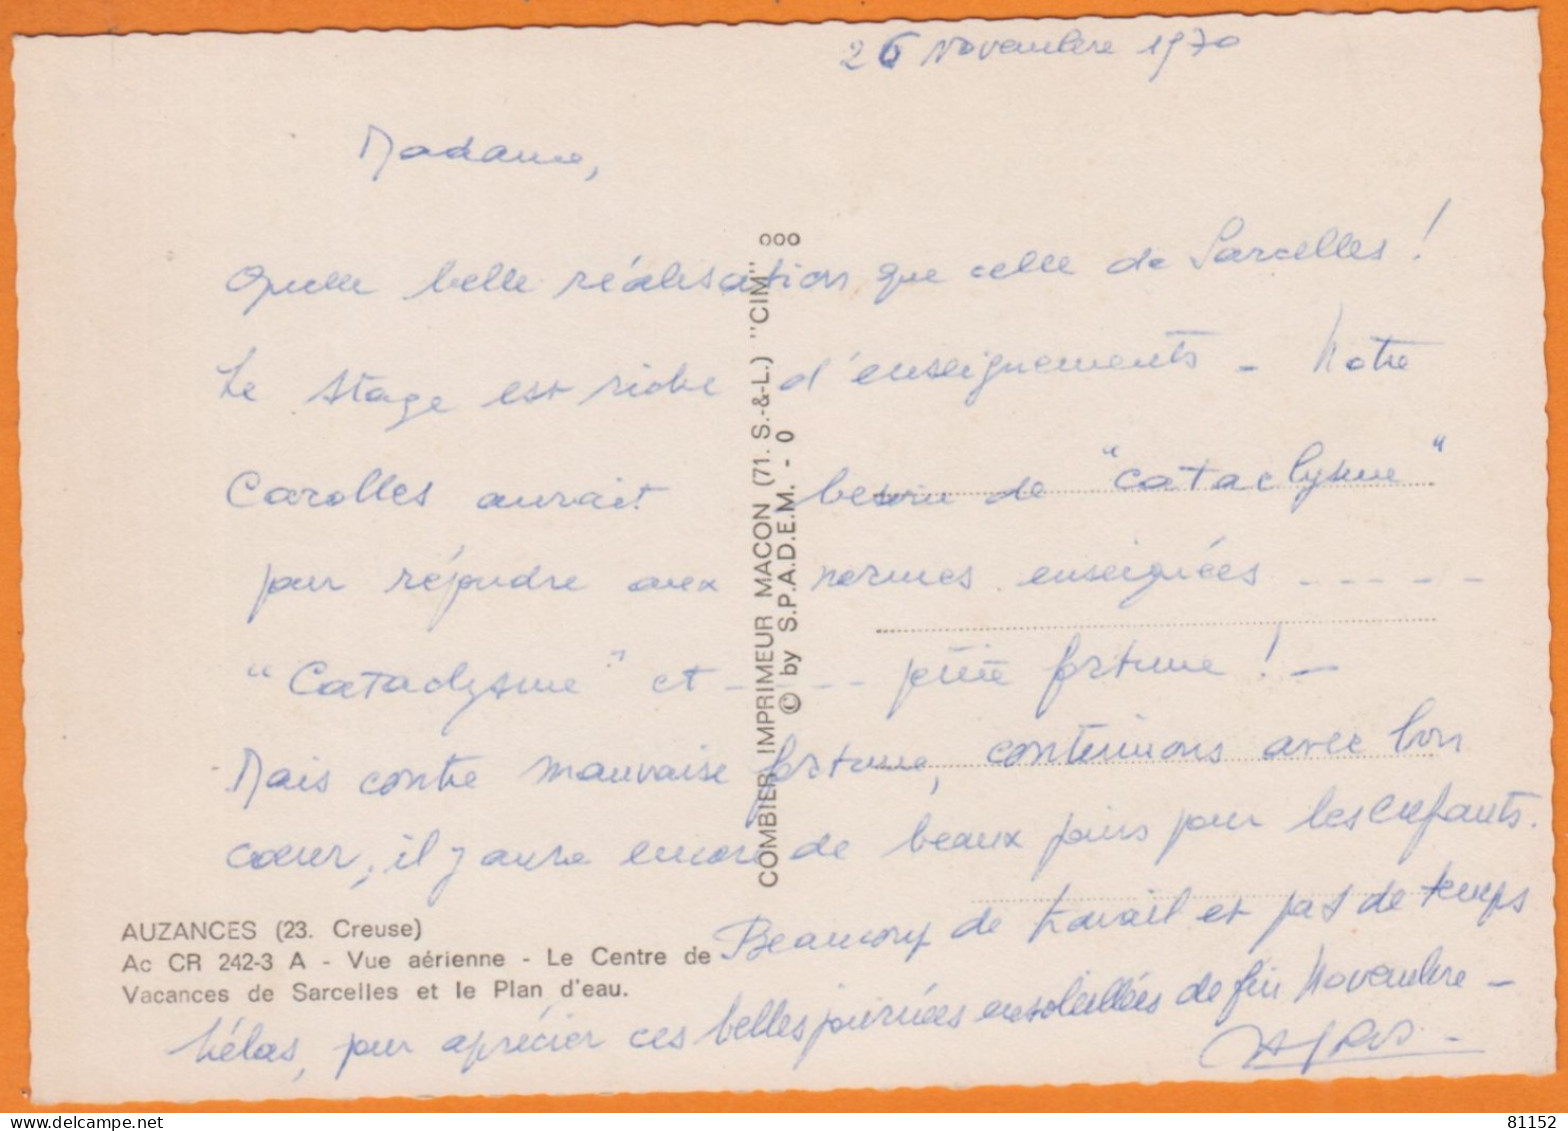 26 Novembre 1970
Madame,
Quelle belle réalisation que celle de Sarcelles !
Le stage est riche d'enseignements - Notre
Carolles aurait besoin de "cataclysme"
pour répondre aux normes enseignées - - - - -
"Cataclysme" et - - - - petite fortune ! -
Mais contre mauvaise fortune, continuons avec bon
cœur, il y aura encore de beaux jours pour les enfants.
Beaucoup de travail et pas de temps
hélas, pour apprécier ces belles journées ensoleillées de fin Novembre -
COMBIER IMPRIMEUR MACON (71. S.-&-L.) "CIM" ooo
© by S.P.A.D.E.M. - 0
AUZANCES (23. Creuse)
Ac CR 242-3 A - Vue aérienne - Le Centre de
Vacances de Sarcelles et le Plan d'eau.
81152